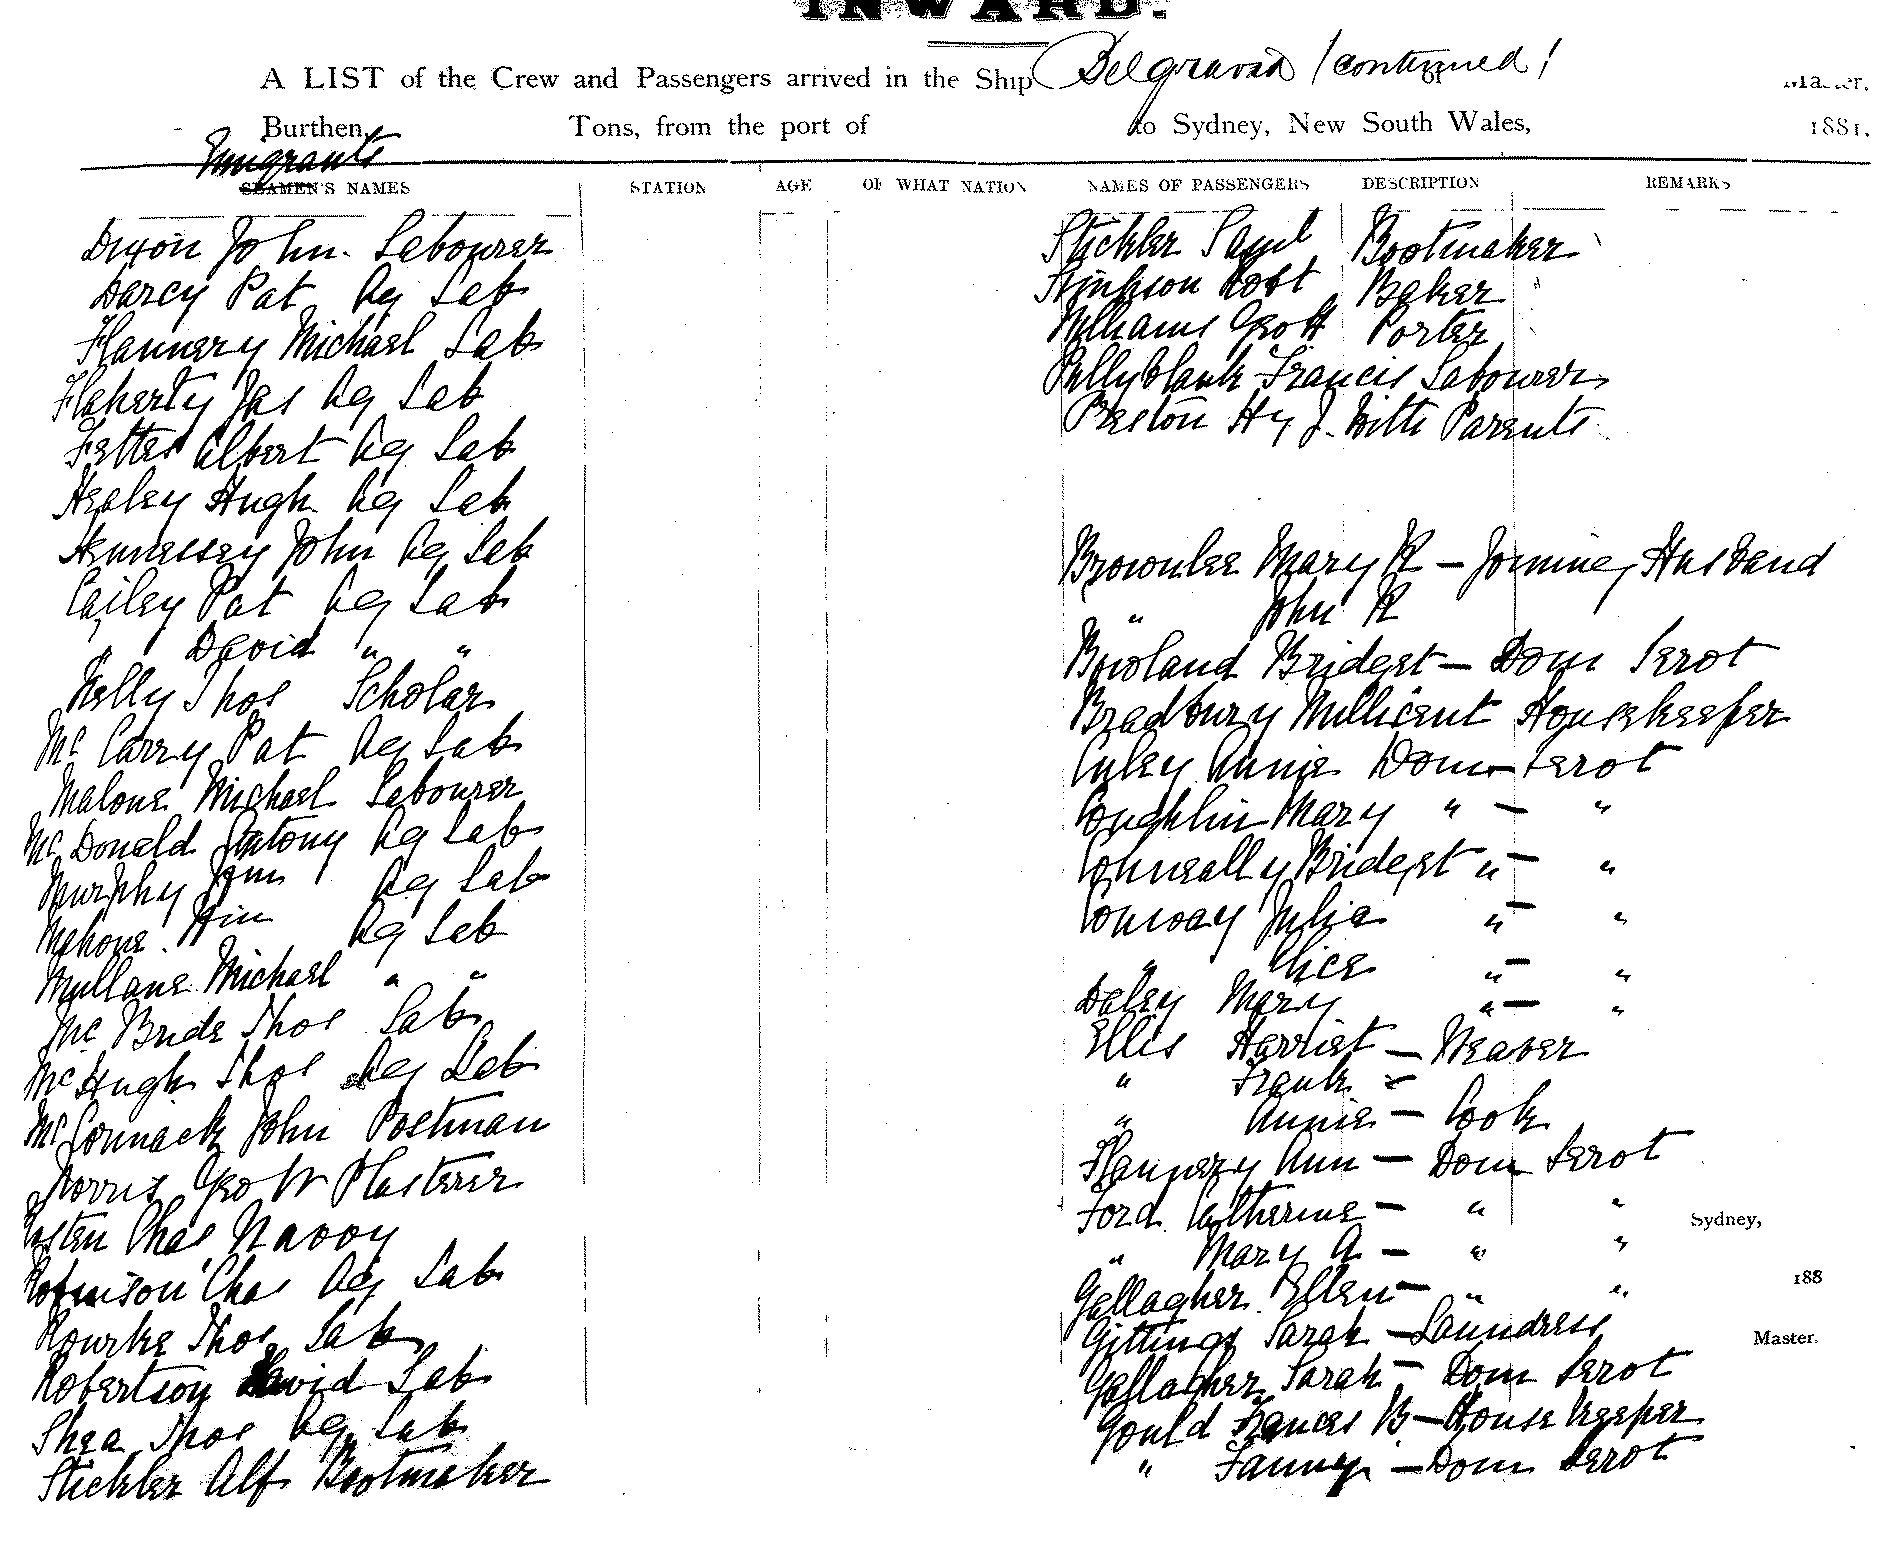 INWARD.
A LIST of the Crew and Passengers arrived in the Ship Belgravia (continued)
Master.
Burthen, Tons, from the port of to Sydney, New South Wales, 1881.
Emigrants
SEAMEN'S NAMES STATION AGE OF WHAT NATION NAMES OF PASSENGERS DESCRIPTION REMARKS
Dixon John. Labourer
Darcy Pat Ag Lab
Flannery Michael Lab
Flaherty Jas Ag Lab
Fetter Albert Ag Lab
Healey Hugh Ag Lab
Hennessey John Ag Lab
Pat Ag Lab
" David " "
Kelly Thos Scholar
Mc Carry Pat Ag Lab
Malone Michael Labourer
Mc Donald Antony Ag Lab
Murphy Ag Lab
Mahone Wm Ag Lab
Mullane Michael " "
Mc Bride Thos Lab
Mc Hugh Thos Ag Lab
Mc Cormack John Postman
Norris Geo W Plasterer
Chas Navvy
Robinson Chas Ag Lab
Rourke Thos Lab
Robertson David Lab
Shea Thos Ag Lab
Stickler Alf Bootmaker
Stickler Saml Bootmaker
Robt Baker
Williams Geo H Porter
Pellyblank Francis Labourer
Preston Hy J. With Parents
Brownlee Mary R - Joining Husband
" John R
Bowland Bridget - Dom Servt
Bradbury Millicent Housekeeper
Annie Dom Servt
Coughlin Mary " - "
Conneally Bridget " - "
Conway Julia " - "
" Alice " - "
Daley Mary " - "
Ellis Harriet - Weaver
" Frank -
" Annie - Cook
Flannery Ann - Dom Servt
Ford Catherine - " "
" Mary A - " "
Gallagher Ellen - " "
Gittings Sarah - Laundress
Gallagher Sarah - Dom Servt
Gould Frances B - House Keeper
" Fanny - Dom Servt
Sydney,
188
Master.